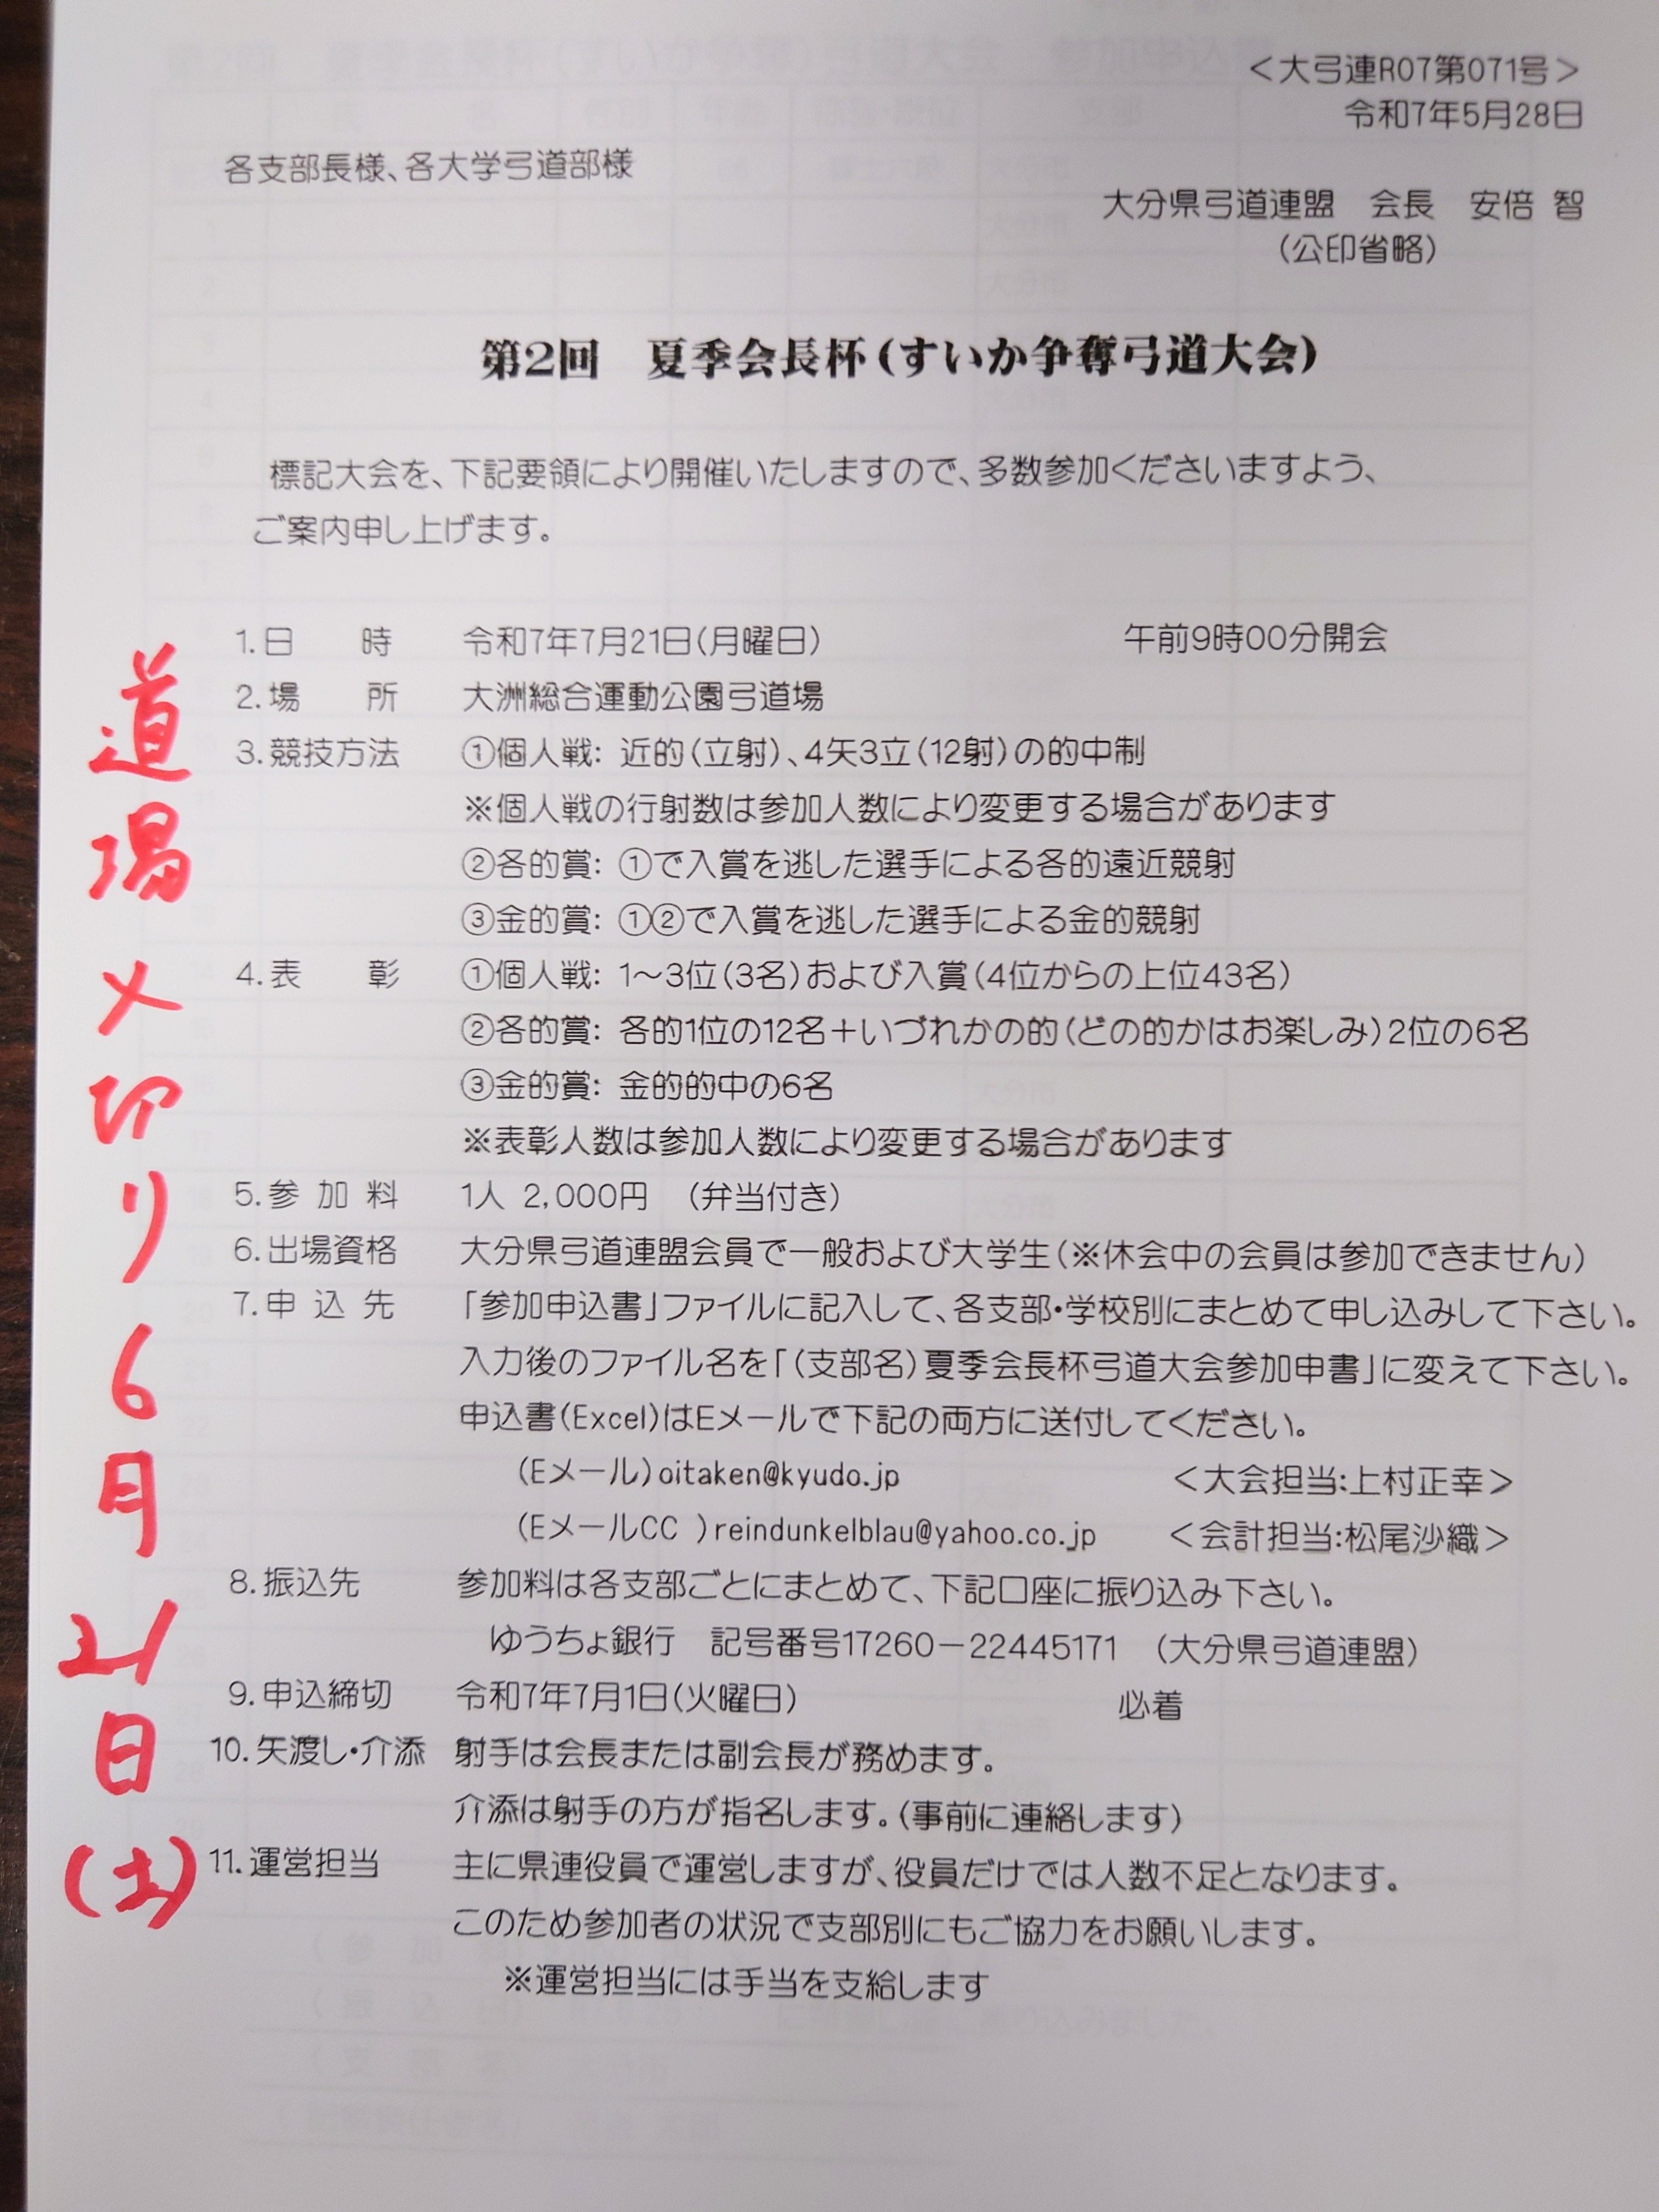 <大弓連R07第071号>
令和7年5月28日
各支部長様、各大学弓道部様
大分県弓道連盟 会長 安倍 智
(公印省略)
第2回 夏季会長杯(すいか争奪弓道大会)
標記大会を、下記要領により開催いたしますので、多数参加くださいますよう、
ご案内申し上げます。
1.日 時 令和7年7月21日(月曜日) 午前9時00分開会
2.場 所 大洲総合運動公園弓道場
3.競技方法 ①個人戦: 近的(立射)、4矢3立(12射)の的中制
※個人戦の行射数は参加人数により変更する場合があります
②各的賞: ①で入賞を逃した選手による各的遠近競射
③金的賞: ①②で入賞を逃した選手による金的競射
4.表 彰 ①個人戦: 1～3位(3名)および入賞(4位からの上位43名)
②各的賞: 各的1位の12名+いづれかの的(どの的かはお楽しみ)2位の6名
③金的賞: 金的的中の6名
※表彰人数は参加人数により変更する場合があります
5.参 加 料 1人 2,000円 (弁当付き)
6.出場資格 大分県弓道連盟会員で一般および大学生(※休会中の会員は参加できません)
7.申 込 先 「参加申込書」ファイルに記入して、各支部・学校別にまとめて申し込みして下さい。
入力後のファイル名を「(支部名)夏季会長杯弓道大会参加申書」に変えて下さい。
申込書(Excel)はEメールで下記の両方に送付してください。
(Eメール)oitaken@kyudo.jp <大会担当:上村正幸>
(EメールCC )reindunkelblau@yahoo.co.jp <会計担当:松尾沙織>
8.振込先 参加料は各支部ごとにまとめて、下記口座に振り込み下さい。
ゆうちょ銀行 記号番号17260-22445171 (大分県弓道連盟)
9.申込締切 令和7年7月1日(火曜日) 必着
10.矢渡し・介添 射手は会長または副会長が務めます。
介添は射手の方が指名します。(事前に連絡します)
11.運営担当 主に県連役員で運営しますが、役員だけでは人数不足となります。
このため参加者の状況で支部別にもご協力をお願いします。
※運営担当には手当を支給します
道場〆切り6月21日(土)